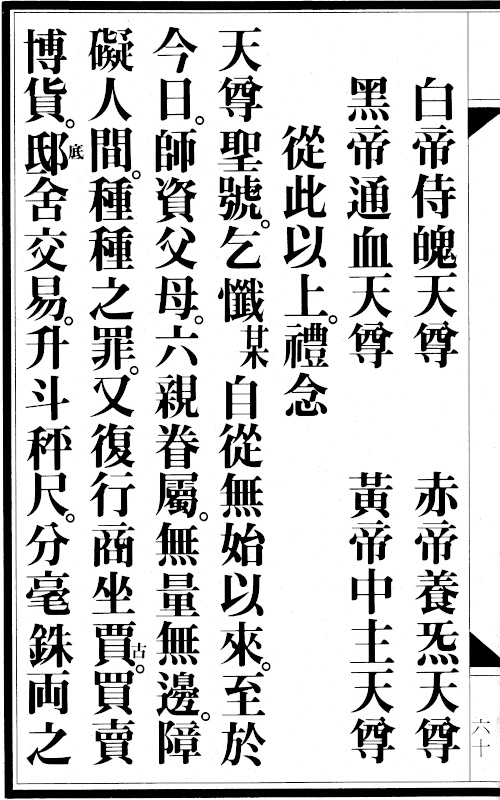 白帝侍魄天尊　赤帝養炁天尊
黑帝通血天尊　黃帝中主天尊
從此以上。禮念
天尊聖號。乞懺某自從無始以來。至於
今日。師資父母。六親眷屬。無量無邊。障
礙人間。種種之罪。又復行商坐賈古。買賣
博貨。邸底舍交易。升斗秤尺。分毫銖両之
六十